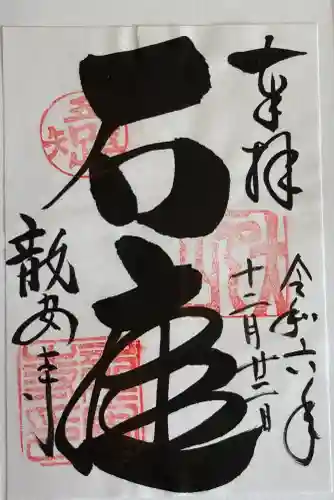 奉拝
令和六年
十二月廿二日
石庭
龍安寺